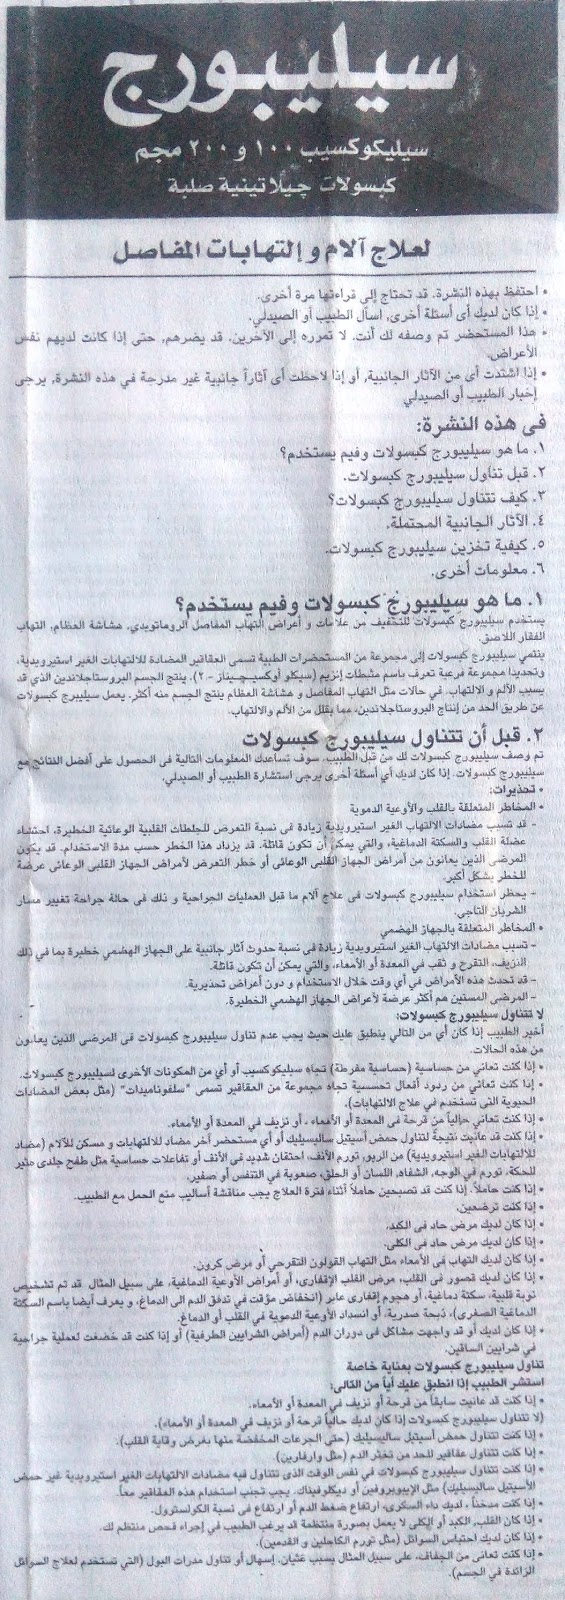 سيليبورج
سيليكوكسيب ١٠٠ و ٢٠٠ مجم
كبسولات چيلاتينية صلبة
لعلاج آلام و إلتهابات المفاصل
• احتفظ بهذه النشرة. قد تحتاج إلى قراءتها مرة أخرى.
• إذا كان لديك أى أسئلة أخرى، اسأل الطبيب أو الصيدلي.
• هذا المستحضر تم وصفه لك أنت. لا تمرره إلى الآخرين. قد يضرهم، حتى إذا كانت لديهم نفس
الأعراض.
• إذا اشتدت أى من الآثار الجانبية, أو إذا لاحظت أى آثاراً جانبية غير مدرجة في هذه النشرة, يرجى
إخبار الطبيب أو الصيدلي
فى هذه النشرة:
١. ما هو سيليبورج كبسولات وفيم يستخدم؟
٢. قبل تناول سيليبورج كبسولات.
٣. كيف تتناول سيليبورج كبسولات؟
٤. الآثار الجانبية المحتملة.
٥. كيفية تخزين سيليبورج كبسولات.
٦. معلومات أخرى.
١. ما هو سيليبورج كبسولات وفيم يستخدم؟
يستخدم سيليبورج كبسولات للتخفيف من علامات و أعراض التهاب المفاصل الروماتويدي, هشاشة العظام, التهاب
الفقار اللاصق.
ينتمي سيليبورج كبسولات إلى مجموعة من المستحضرات الطبية تسمى العقاقير المضادة للالتهابات الغير استيرويدية,
وتحديدا مجموعة فرعية تعرف باسم مثبطات إنزيم (سيكلو أوكسيچيناز - ٢). ينتج الجسم البروستاجلاندين الذي قد
يسبب الألم و الالتهاب. في حالات مثل التهاب المفاصل و هشاشة العظام ينتج الجسم منه أكثر. يعمل سيليبورج كبسولات
عن طريق الحد من إنتاج البروستاجلاندين, مما يقلل من الألم والالتهاب.
٢. قبل أن تتناول سيليبورج كبسولات
تم وصف سيليبورج كبسولات لك من قبل الطبيب. سوف تساعدك المعلومات التالية فى الحصول على أفضل النتائج مع
سيليبورج كبسولات. إذا كان لديك أي أسئلة أخرى يرجى استشارة الطبيب أو الصيدلي.
• تحذيرات:
• المخاطر المتعلقة بالقلب والأوعية الدموية
- قد تسبب مضادات الالتهاب الغير استيرويدية زيادة فى نسبة التعرض للجلطات القلبية الوعائية الخطيرة, احتشاء
عضلة القلب والسكتة الدماغية, والتي يمكن أن تكون قاتلة. قد يزداد هذا الخطر حسب مدة الاستخدام. قد يكون
المرضى الذين يعانون من أمراض الجهاز القلبى الوعائى أو خطر التعرض لأمراض الجهاز القلبى الوعائى عرضة
للخطر بشكل أكبر.
- يحظر استخدام سيليبورج كبسولات فى علاج آلام ما قبل العمليات الجراحية و ذلك فى حالة جراحة تغيير مسار
الشريان التاجي.
• المخاطر المتعلقة بالجهاز الهضمي
- تسبب مضادات الالتهاب الغير استيرويدية زيادة فى نسبة حدوث آثار جانبية على الجهاز الهضمي خطيرة بما في ذلك
النزيف, التقرح و ثقب في المعدة أو الأمعاء, والتي يمكن أن تكون قاتلة.
- قد تحدث هذه الأمراض في أي وقت خلال الاستخدام و دون أعراض تحذيرية.
- المرضى المسنين هم أكثر عرضة لأعراض الجهاز الهضمي الخطيرة.
لا تتناول سيليبورج كبسولات:
أخبر الطبيب إذا كان أي من التالي ينطبق عليك حيث يجب عدم تناول سيليبورج كبسولات فى المرضى الذين يعانون
من هذه الحالات.
• إذا كنت تعاني من حساسية (حساسية مفرطة) تجاه سيليكوكسيب أو أي من المكونات الأخرى لسيليبورج كبسولات.
• إذا كنت تعاني من ردود أفعال تحسسية تجاه مجموعة من العقاقير تسمى "سلفوناميدات" (مثل بعض المضادات
الحيوية التى تستخدم في علاج الالتهابات).
• إذا كنت تعاني حالياً من قرحة فى المعدة أو الأمعاء ، أو نزيف في المعدة أو الأمعاء.
• إذا كنت قد عانيت نتيجة لتناول حمض أسيتيل ساليسيليك أو أي مستحضر آخر مضاد للالتهابات و مسكن للآلام (مضاد
للالتهابات الغير استيرويدية) من الربو, تورم الأنف, احتقان شديد فى الأنف أو تفاعلات حساسية مثل طفح جلدى مثير
للحكة, تورم في الوجه, الشفاه, اللسان أو الحلق, صعوبة في التنفس أو صفير.
• إذا كنت حاملاً. إذا كنت قد تصبحين حاملاً أثناء فترة العلاج يجب مناقشة أساليب منع الحمل مع الطبيب.
• إذا كنت ترضعين.
• إذا كان لديك مرض حاد فى الكبد.
• إذا كان لديك مرض حاد فى الكلى.
• إذا كان لديك التهاب فى الأمعاء مثل التهاب القولون التقرحي أو مرض كرون.
• إذا كان لديك قصور فى القلب, مرض القلب الإقفارى, أو أمراض الأوعية الدماغية, على سبيل المثال قد تم تشخيص
نوبة قلبية, سكتة دماغية, أو هجوم إقفارى عابر (انخفاض مؤقت في تدفق الدم الى الدماغ, و يعرف أيضا باسم السكتة
الدماغية الصغرى), ذبحة صدرية, أو انسداد الأوعية الدموية فى القلب أو الدماغ.
• إذا كان لديك أو قد واجهت مشاكل فى دوران الدم (أمراض الشرايين الطرفية) أو إذا كنت قد خضعت لعملية جراحية
في شرايين الساقين.
تناول سيليبورج كبسولات بعناية خاصة
استشر الطبيب إذا انطبق عليك أياً من التالى:
• إذا كنت قد عانيت سابقاً من قرحة أو نزيف في المعدة أو الأمعاء.
(لا تتناول سيليبورج كبسولات إذا كان لديك حالياً قرحة أو نزيف في المعدة أو الأمعاء).
• إذا كنت تتناول حمض أسيتيل ساليسيليك (حتى الجرعات المخفضة منها بغرض وقاية القلب).
• إذا كنت تتناول عقاقير للحد من تخثر الدم (مثل وارفارين).
• إذا كنت تتناول سيليبورج كبسولات في نفس الوقت الذى تتناول فيه مضادات الالتهابات الغير استيرويدية غير حمض
الأسيتيل ساليسيليك) مثل الإيبوبروفين أو ديكلوفيناك. يجب تجنب استخدام هذه العقاقير معاً.
• إذا كنت مدخناً, لديك داء السكرى, ارتفاع ضغط الدم أو ارتفاع فى نسبة الكولسترول.
• إذا كان القلب, الكبد أو الكلى لا يعمل بصورة منتظمة قد يرغب الطبيب في إجراء فحص منتظم لك.
• إذا كان لديك احتباس السوائل (مثل تورم الكاحلين و القدمين).
• إذا كنت تعانى من الجفاف, على سبيل المثال بسبب غثيان, إسهال أو تناول مدرات البول (التي تستخدم لعلاج السوائل
الزائدة في الجسم).